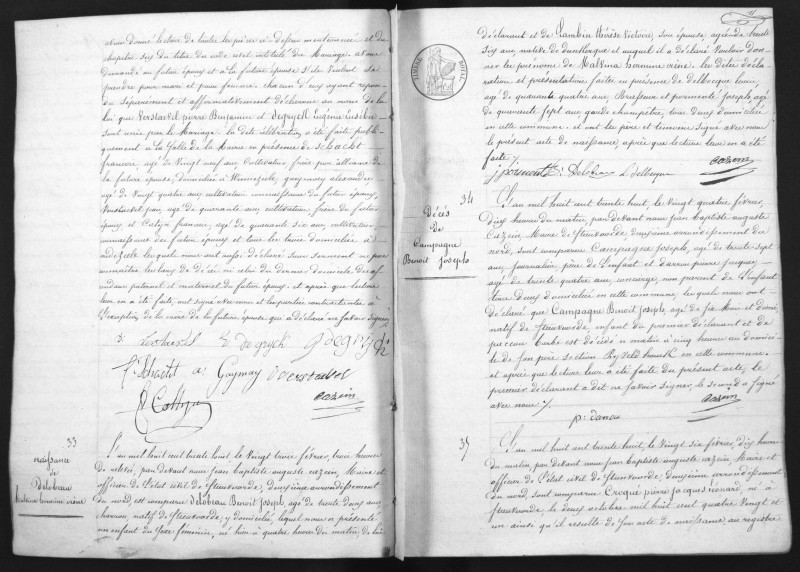 avoir donné lecture de toutes les pièces ci-dessus mentionnées et du
chapitre six du titre du code civil intitulé du Mariage, avons
demandé au futur époux et à la future épouse s'ils veulent se
prendre pour mari et pour femme, chacun d'eux ayant répon-
du séparément et affirmativement déclarons au nom de la
loi que Verstavel pierre Benjamin et Degryck Eugénie
sont unis par le Mariage. La dite célébration a été faite publi-
quement à la Salle de la Mairie en présence de Schacht
francois, agé de Vingt neuf ans Cultivateur, frère par alliance de
la future épouse, domicilié à Winnezeele, gueymay alexandre
agé de Vingt quatre ans cultivateur du futur époux,
Verstavel jean, agé de quarante ans cultivateur, frère du futur
époux et Calyn francois, agé de quarante six ans cultivateur
du futur époux et tous les trois domiciliés à
lesquels nous ont aussi déclaré sous serment ne pas
connaître les lieux de décès ni celui du dernier domicile des aï-
eux paternel et maternel du futur époux. et après que lecture
leur en a été faite, ont signé avec nous et les parties contractantes à
l'exception de la mère de la future épouse qui a déclaré ne savoir signer
E Degryck
f Schacht a: Guymay
Cazein
33
naissance
de
Delobeau
Malvina hermine irène
L'an mil huit cent trente huit le Vingt trois février, trois heures
de relevée, par devant nous Jean Baptiste auguste cazein, Maire et
officier de l'état civil de Steenvoorde, deuxième arrondissement
du nord, est comparu Delobeau Benoit Joseph, agé de trente deux ans,
charron, natif de Steenvoorde, y domicilié, lequel nous a présenté
un enfant du sexe féminin, né hier à quatre heures du matin, de lui
déclarant et de Lambin thérèse Victoire, son épouse, agée de trente
six ans, native de dunkerque et auquel il a déclaré vouloir don-
ner les prénoms de Malvina hermine irène. les dites décla-
ration et présentation faites en présence de delbecque louis,
agé de quarante quatre ans Brasseur et pormenté joseph, agé
de quarante sept ans garde champêtre, tous deux domiciliés
en cette commune. et ont les père et témoins signé avec nous
le présent acte de naissance, après que lecture leur en a été
faite.
TIMBRE ROYAL
j pormenté Delobeau L Delbecque
Cazein
34
Décès
de
Campagne
Benoit Joseph
L'an mil huit cent trente huit, le vingt quatre février,
dix heures du matin, par devant nous jean Baptiste auguste
Cazein, Maire de Steenvoorde, deuxième arrondissement du
nord, sont comparus Campagne Joseph, agé de trente sept
ans, journalier, père de l'enfant et darrein pierre jacques,
agé de trente quatre ans, concierge, non parent de l'enfant
tous deux domiciliés en cette commune, lesquels nous ont
déclaré que Campagne Benoit Joseph, agé de six Mois et demi,
natif de Steenvoorde, enfant du premier déclarant et de
Barbe est décédé ce matin à cinq heures au domici-
le de son père section en cette commune.
et après que lecture leur a été faite du présent acte, le
premier déclarant a dit ne savoir signer, le second a signé
avec nous.
Cazein
p: danau
35
L'an mil huit cent trente huit, le vingt six février, dix heures
du matin, par devant nous jean baptiste auguste cazein Maire et
officier de l'état civil de Steenvoorde, deuxième arrondissement
du nord, sont comparus Croqué pierre jacques léonard, né à
Steenvoorde, le deux octobre mil huit cent quatre vingt et
un ainsi qu'il résulte de son acte de naissance au registre